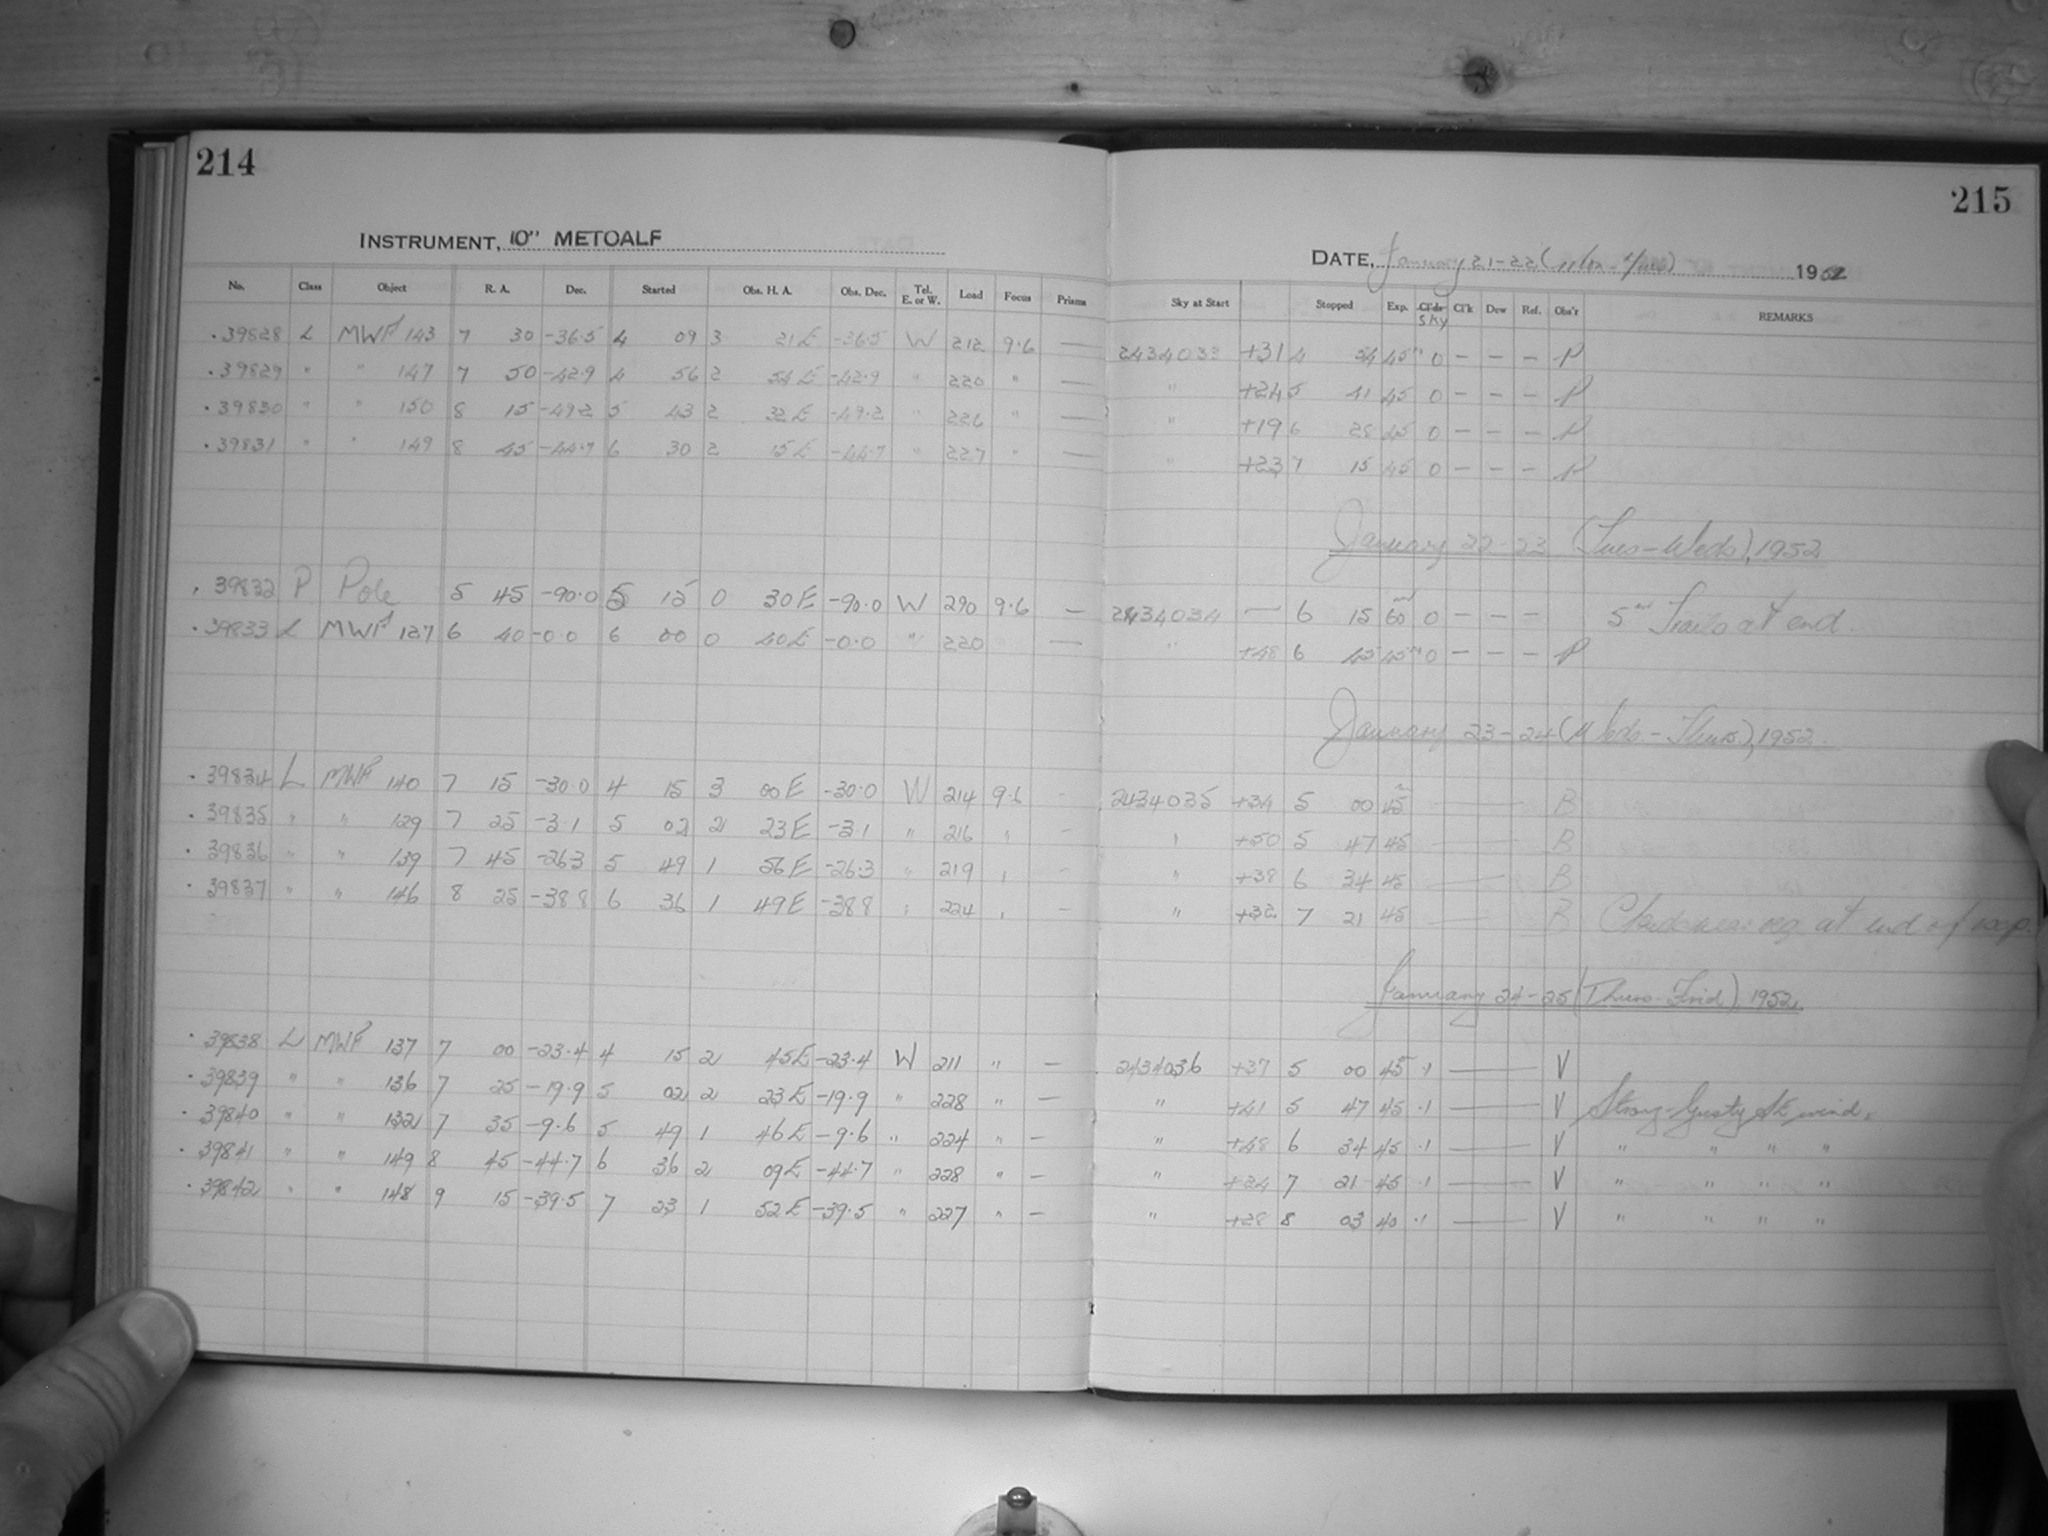 214
INSTRUMENT, 10" METCALF
No. Class Object R. A. Dec. Started Obs. H. A. Obs. Dec. Tel. E. or W. Load Focus Prisms
.39828 L MWF 143 7 30 -36.5 4 09 3 21 E -36.5 W 212 9.6 —
.39829 " " 147 7 50 -42.9 4 56 2 54 E -42.9 " 220 " —
.39830 " " 150 8 15 -49.2 5 43 2 32 E -49.2 " 226 " —
.39831 " " 149 8 45 -44.7 6 30 2 15 E -44.7 " 227 " —
.39832 P Pole 5 45 -90.0 5 15 0 30 E -90.0 W 290 9.6 —
.39833 L MWF 127 6 40 -0.0 6 00 0 40 E -0.0 " 220 —
.39834 L MWF 140 7 15 -30.0 4 15 3 00 E -30.0 W 214 9.6 -
.39835 " " 129 7 25 -3.1 5 02 2 23 E -3.1 " 216 " -
.39836 " " 139 7 45 -26.3 5 49 1 56 E -26.3 " 219 " -
.39837 " " 146 8 25 -38.8 6 36 1 49 E -38.8 " 224 " -
.39838 L MWF 137 7 00 -23.4 4 15 2 45 E -23.4 W 211 " —
.39839 " " 136 7 25 -19.9 5 02 2 23 E -19.9 " 228 " —
.39840 " " 132 7 35 -9.6 5 49 1 46 E -9.6 " 224 " —
.39841 " " 149 8 45 -44.7 6 36 2 09 E -44.7 " 228 " —
.39842 " " 148 9 15 -39.5 7 23 1 52 E -39.5 " 227 " —
215
DATE, January 21-22 (Mon-Tues) 1952
Sky at Start Stopped Exp. Cl'ds Sky Cl'k Dew Ref. Obs'r REMARKS
2434033 +31 4 54 45m 0 — — — P
" +24 5 41 45 0 — — — P
" +19 6 28 45 0 — — — P
" +23 7 15 45 0 — — — P
January 22-23 (Tues-Weds), 1952
2434034 — 6 15 60m 0 — — — 5m Trails at end.
" +48 6 45 45m 0 — — — P
January 23-24 (Weds.-Thurs.), 1952.
2434035 +34 5 00 45m — B
" +50 5 47 45 — B
" +38 6 34 45 — B
" +32 7 21 45 — B at end of exp.
January 24-25 (Thurs-Frid), 1952.
2434036 +37 5 00 45 .1 — V
" +41 5 47 45 .1 — V Strong Gusty SE wind.
" +48 6 34 45 .1 — V " " " "
" +34 7 21 45 .1 — V " " " "
" +28 8 03 40 .1 — V " " " "